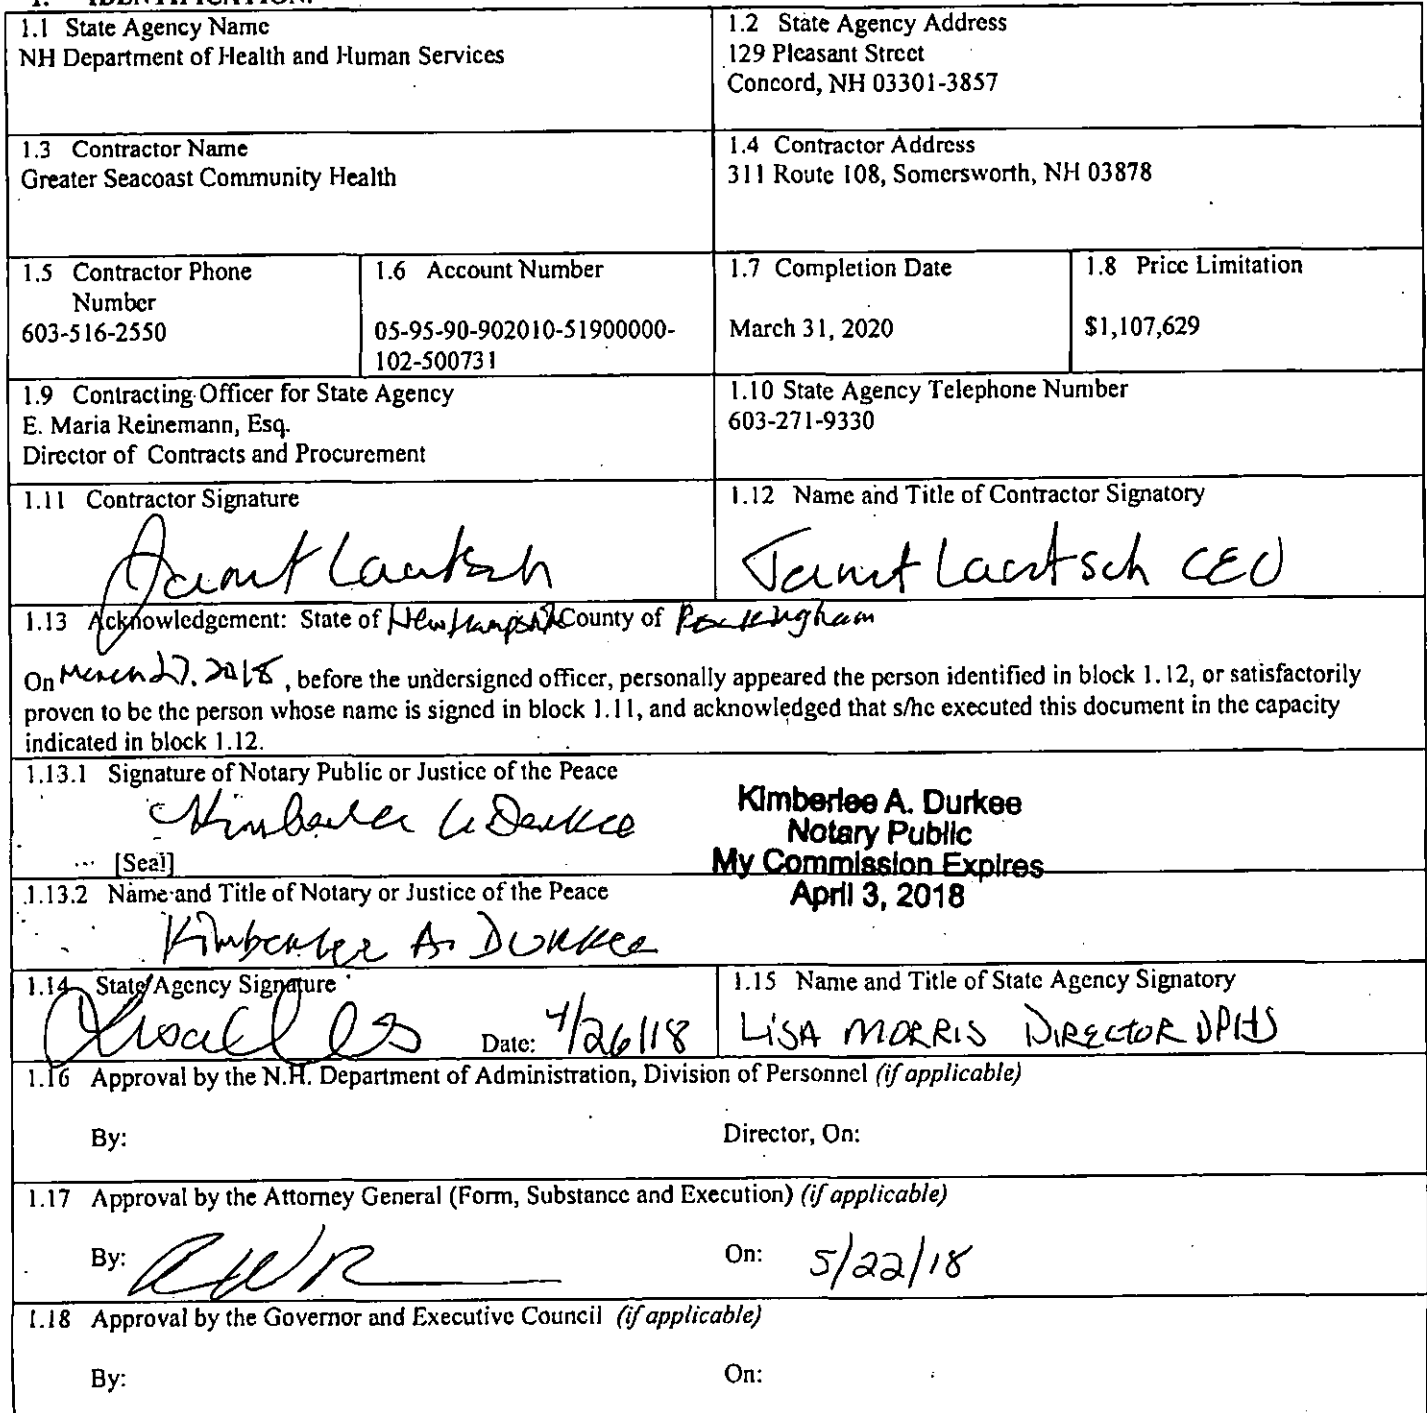 1. IDENTIFICATION.
1.1 State Agency Name
NH Department of Health and Human Services
1.2 State Agency Address
129 Pleasant Street
Concord, NH 03301-3857
1.3 Contractor Name
Greater Seacoast Community Health
1.4 Contractor Address
311 Route 108, Somersworth, NH 03878
1.5 Contractor Phone
Number
603-516-2550
1.6 Account Number
05-95-90-902010-51900000-
102-500731
1.7 Completion Date
March 31, 2020
1.8 Price Limitation
$1,107,629
1.9 Contracting Officer for State Agency
E. Maria Reinemann, Esq.
Director of Contracts and Procurement
1.10 State Agency Telephone Number
603-271-9330
1.11 Contractor Signature
Janet Laatsch
1.12 Name and Title of Contractor Signatory
Janet Laatsch CEO
1.13 Acknowledgement: State of New Hampshire County of Rockingham
On March 27, 2018, before the undersigned officer, personally appeared the person identified in block 1.12, or satisfactorily
proven to be the person whose name is signed in block 1.11, and acknowledged that s/he executed this document in the capacity
indicated in block 1.12.
1.13.1 Signature of Notary Public or Justice of the Peace
Kimberlee A Durkee
[Seal]
Kimberlee A. Durkee
Notary Public
My Commission Expires
April 3, 2018
1.13.2 Name and Title of Notary or Justice of the Peace
Kimberlee A. Durkee
1.14 State Agency Signature
Date: 4/26/18
1.15 Name and Title of State Agency Signatory
LISA MORRIS DIRECTOR DPHS
1.16 Approval by the N.H. Department of Administration, Division of Personnel (if applicable)
By:
Director, On:
1.17 Approval by the Attorney General (Form, Substance and Execution) (if applicable)
By:
On: 5/22/18
1.18 Approval by the Governor and Executive Council (if applicable)
By:
On: